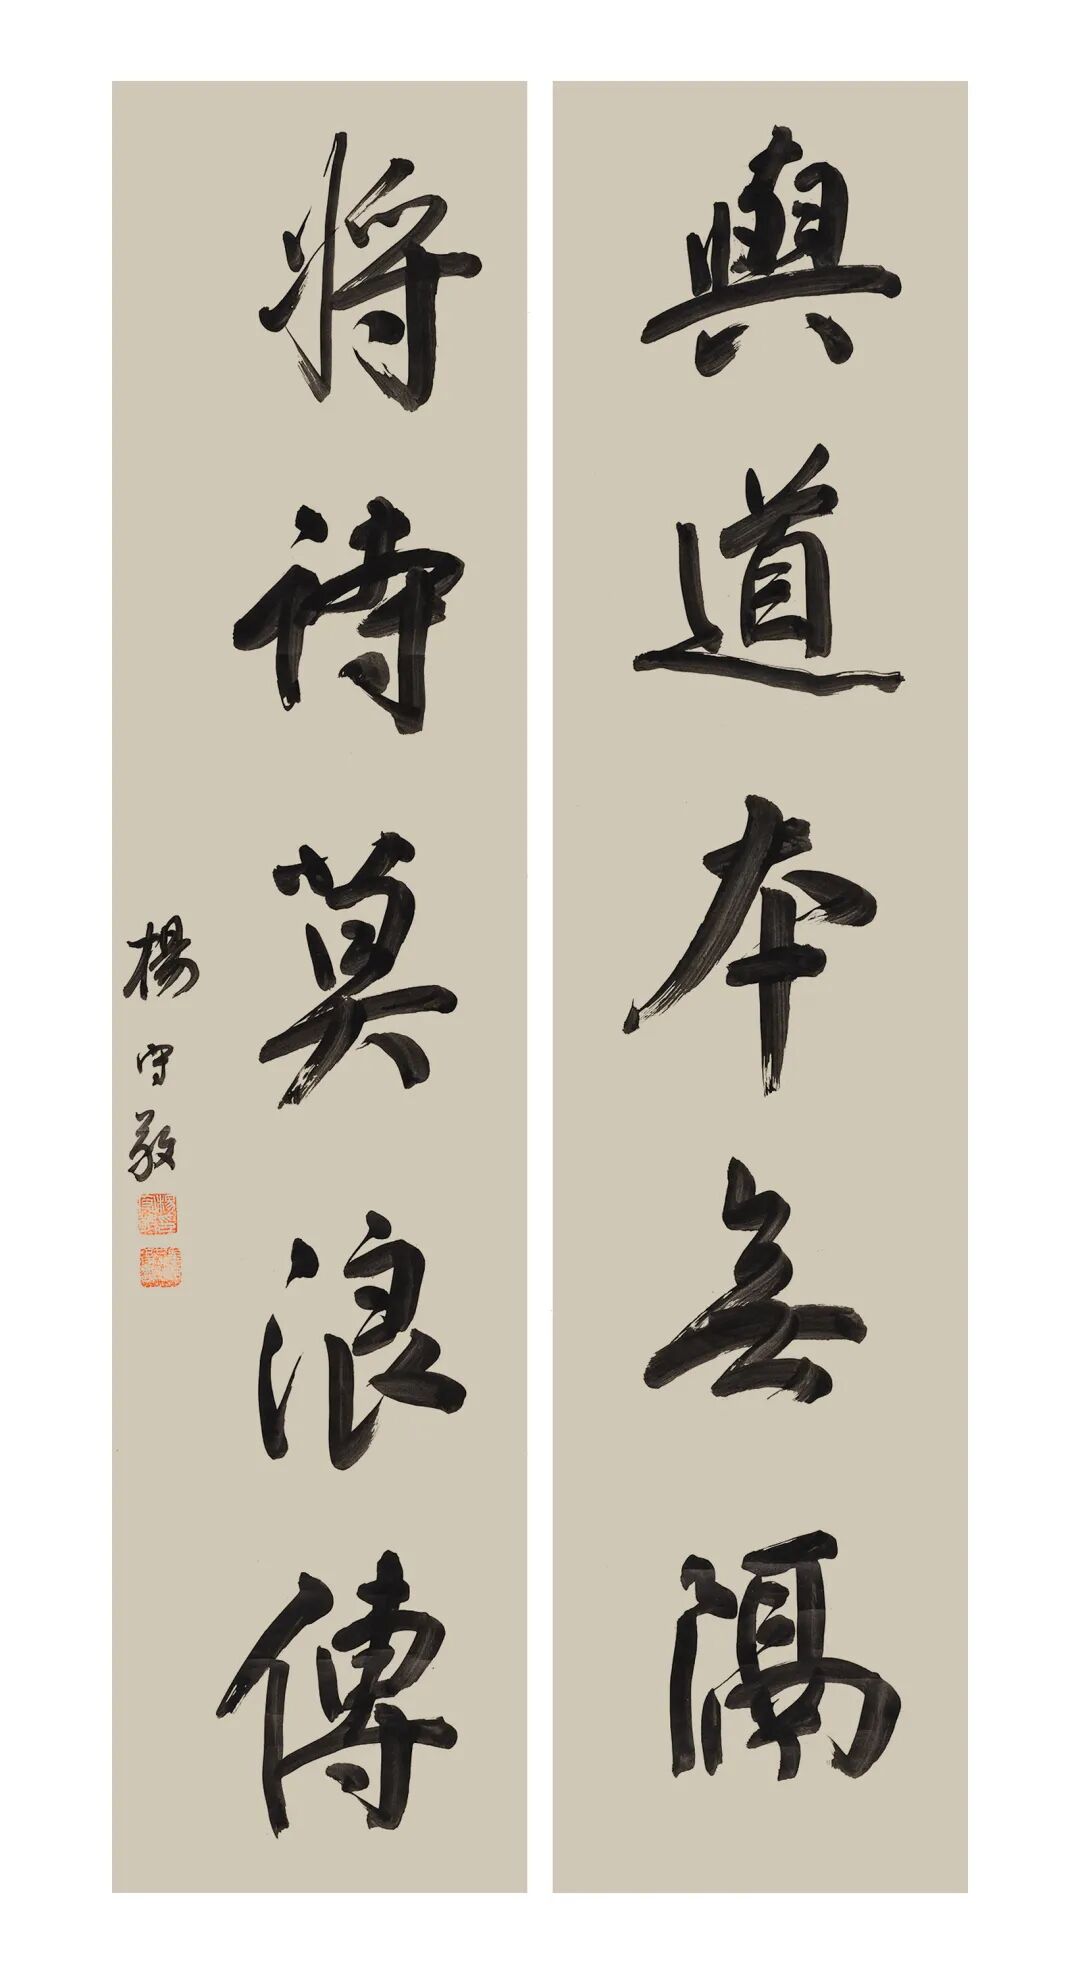 與道本無隔
將詩莫浪傳
楊守敬